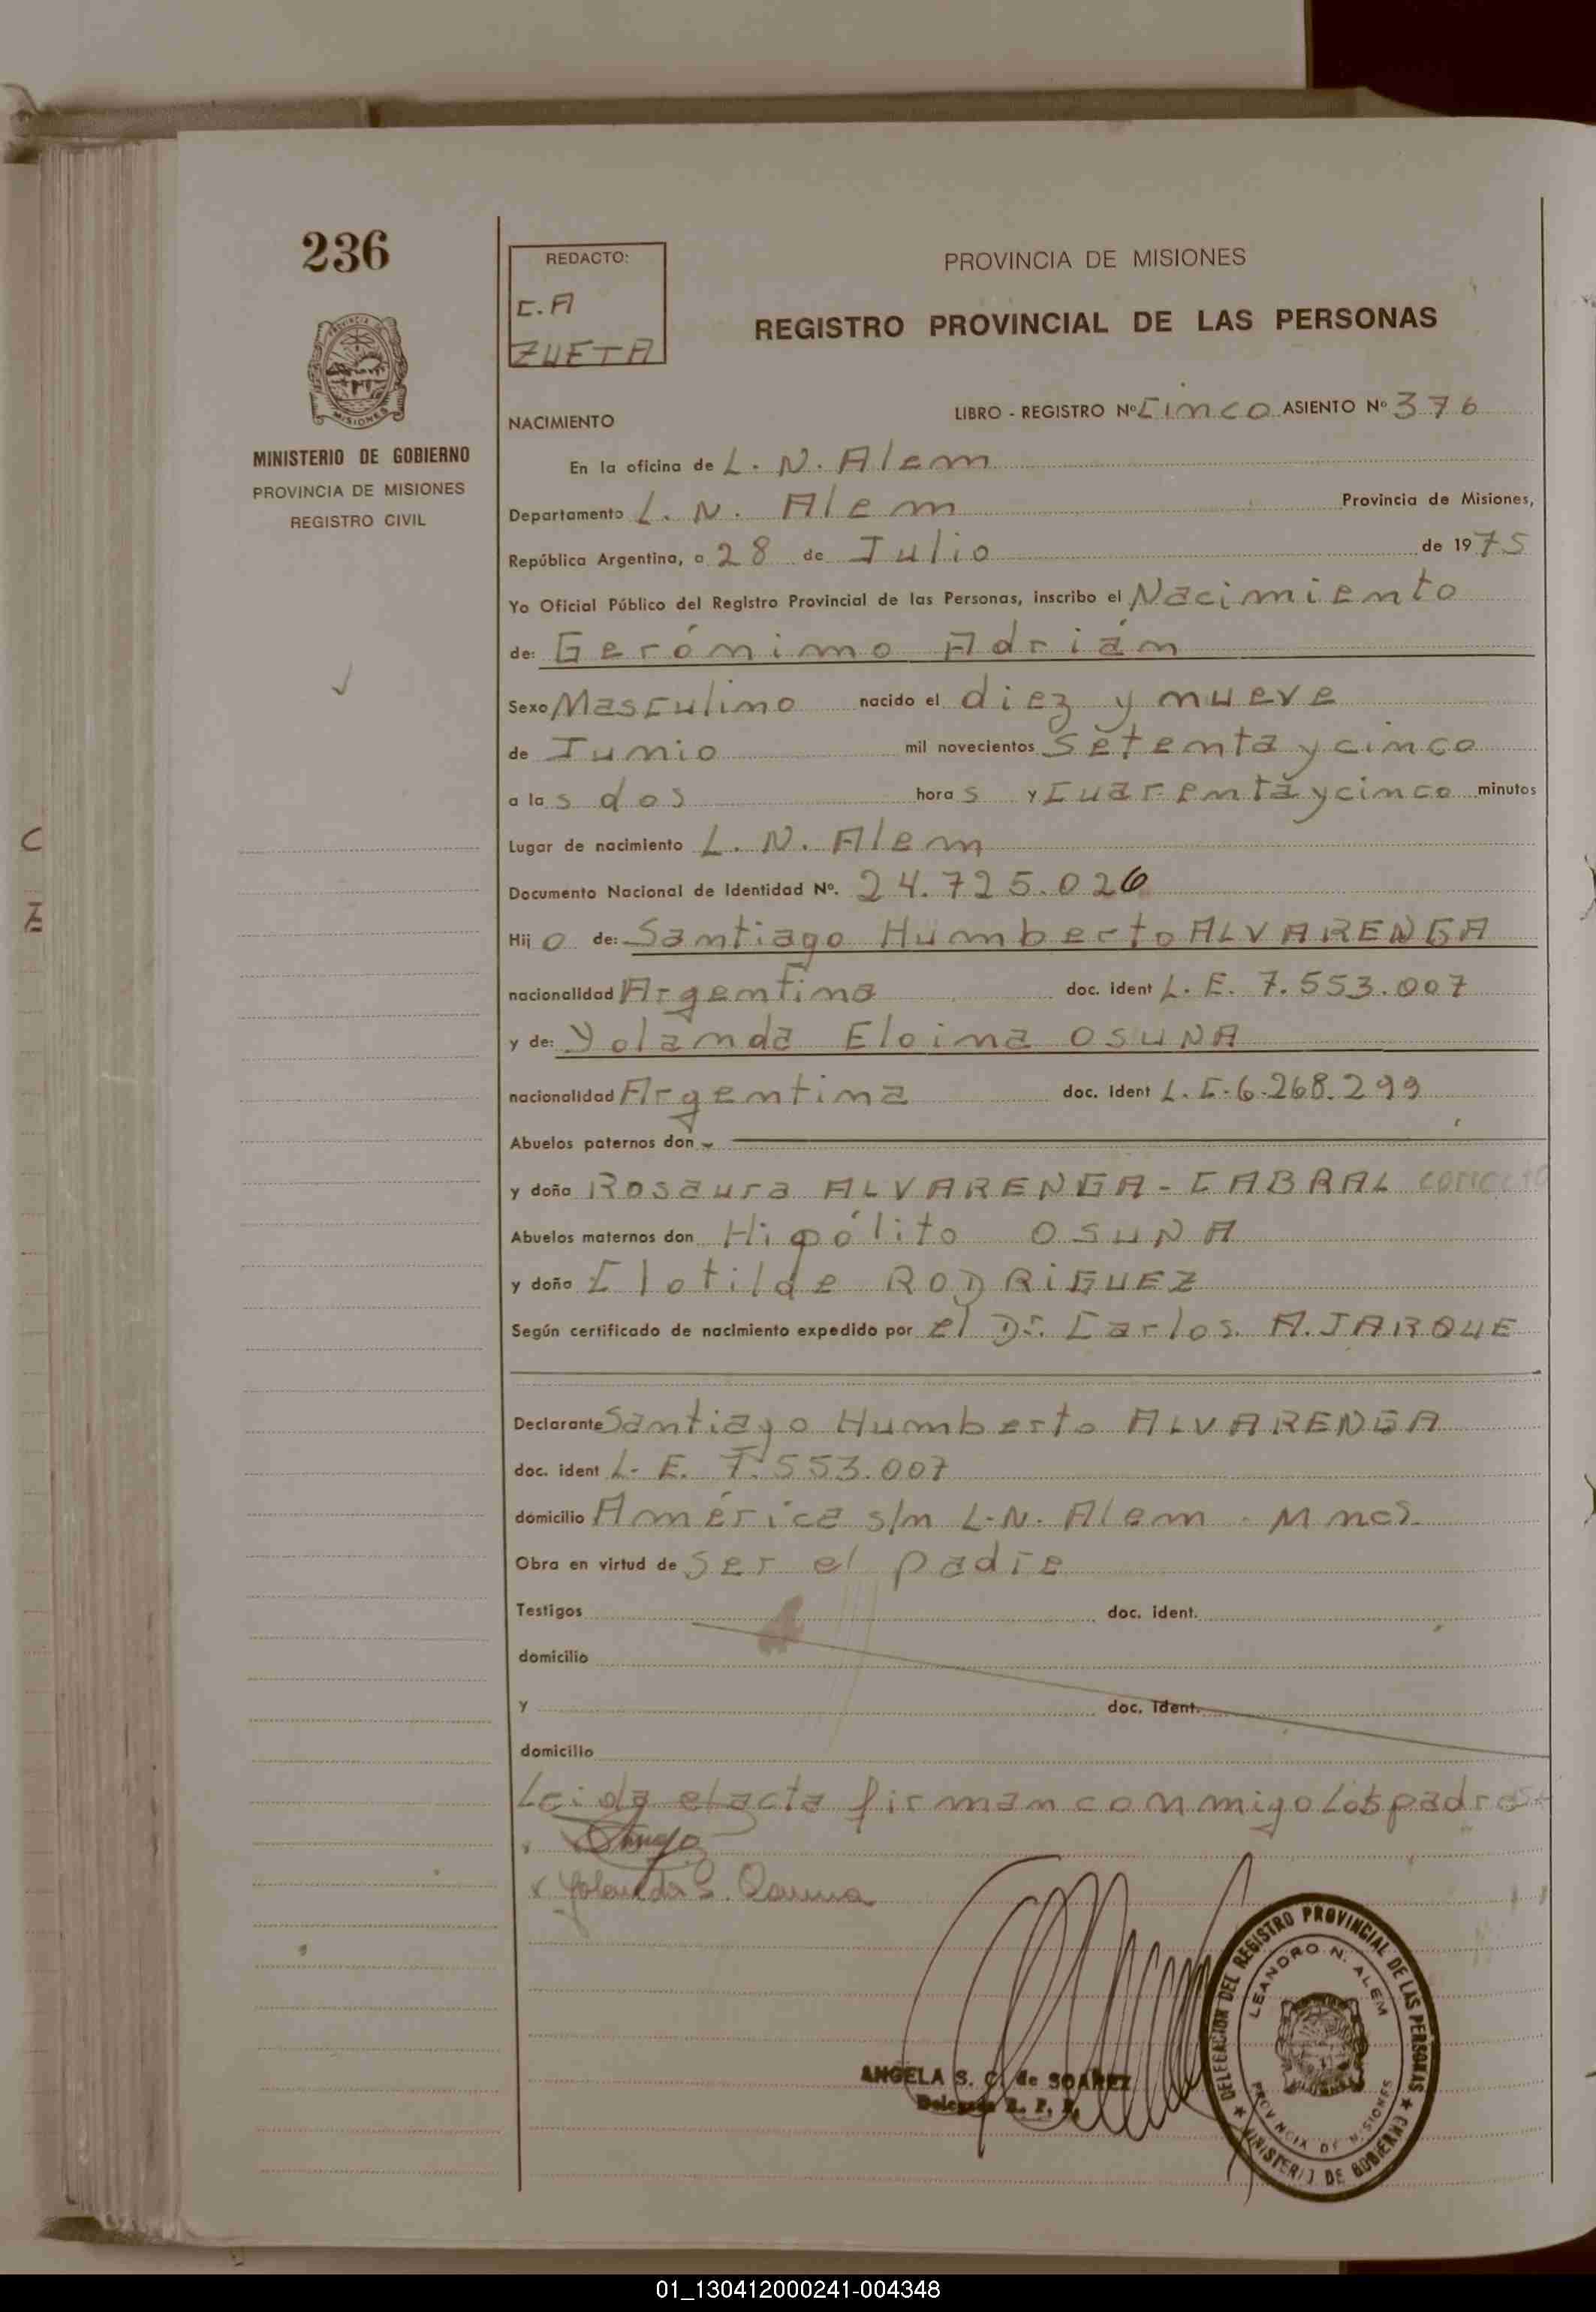 236
PROVINCIA DE
MISIONES
MINISTERIO DE GOBIERNO
PROVINCIA DE MISIONES
REGISTRO CIVIL
C
Z
REDACTO:
C.A
ZUETA
PROVINCIA DE MISIONES
REGISTRO PROVINCIAL DE LAS PERSONAS
LIBRO - REGISTRO Nº Cinco ASIENTO Nº 376
NACIMIENTO
En la oficina de L. N. Alem
Departamento L. N. Alem Provincia de Misiones,
República Argentina, a 28 de Julio de 1975
Yo Oficial Público del Registro Provincial de las Personas, inscribo el Nacimiento
de: Gerónimo Adrián
Sexo Masculino nacido el diez y nueve
de Junio mil novecientos setenta y cinco
a las dos horas y cuarenta y cinco minutos
Lugar de nacimiento L. N. Alem
Documento Nacional de Identidad Nº. 24.725.026
Hijo de: Santiago Humberto ALVARENGA
nacionalidad Argentina doc. ident L. E. 7.553.007
y de: Yolanda Eloina OSUNA
nacionalidad Argentina doc. ident L. C. 6.268.299
Abuelos paternos don
y doña Rosaura ALVARENGA - CABRAL correcto
Abuelos maternos don Hipólito OSUNA
y doña Clotilde RODRIGUEZ
Según certificado de nacimiento expedido por el Dr. Carlos A. JARQUE
Declarante Santiago Humberto ALVARENGA
doc. ident L. E. 7.553.007
domicilio América s/n L. N. Alem - Mnes.
Obra en virtud de ser el padre
Testigos doc. ident.
domicilio
y doc. ident.
domicilio
Leida el acta firman conmigo los padres
x
x Yolanda E. Osuna
ANGELA S. C. de SOAREZ
Delegada R. P. P.
DELEGACION DEL REGISTRO PROVINCIAL DE LAS PERSONAS
LEANDRO N. ALEM
PROVINCIA DE MISIONES
MINISTERIO DE GOBIERNO
01_130412000241-004348